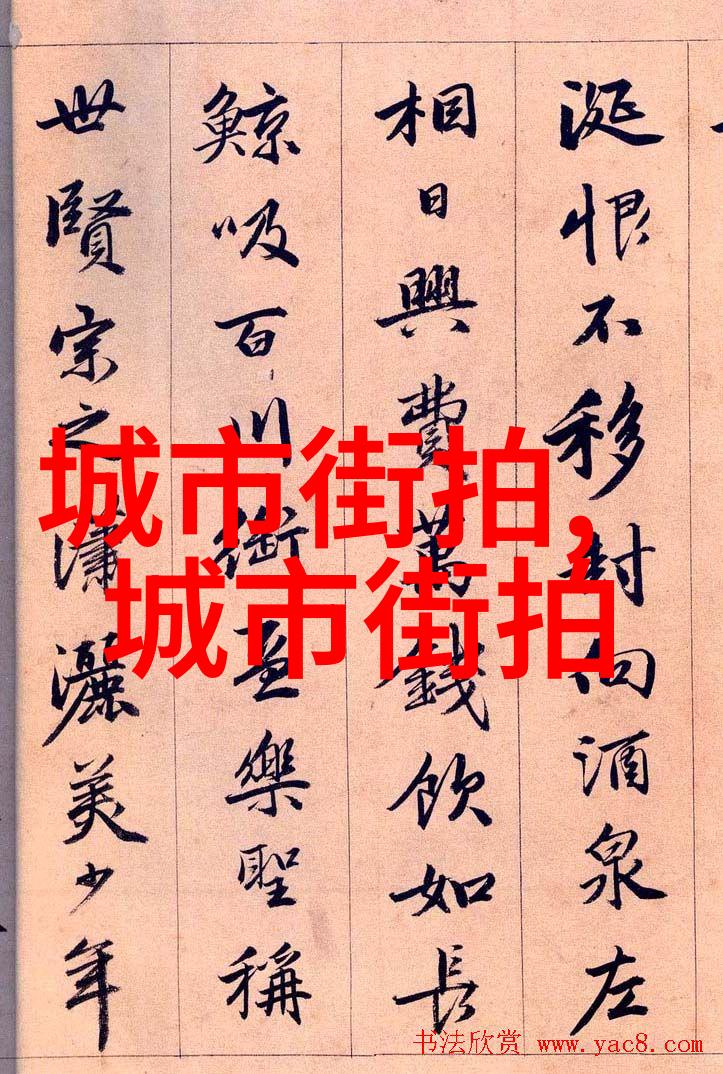 涎恨不移封向酒泉左
相日興費萬錢飲如長
鯨吸百川銜盃樂聖稱
世賢宗之瀟灑美少年
城市街拍,
城市街拍
书法欣赏 www.yac8.com